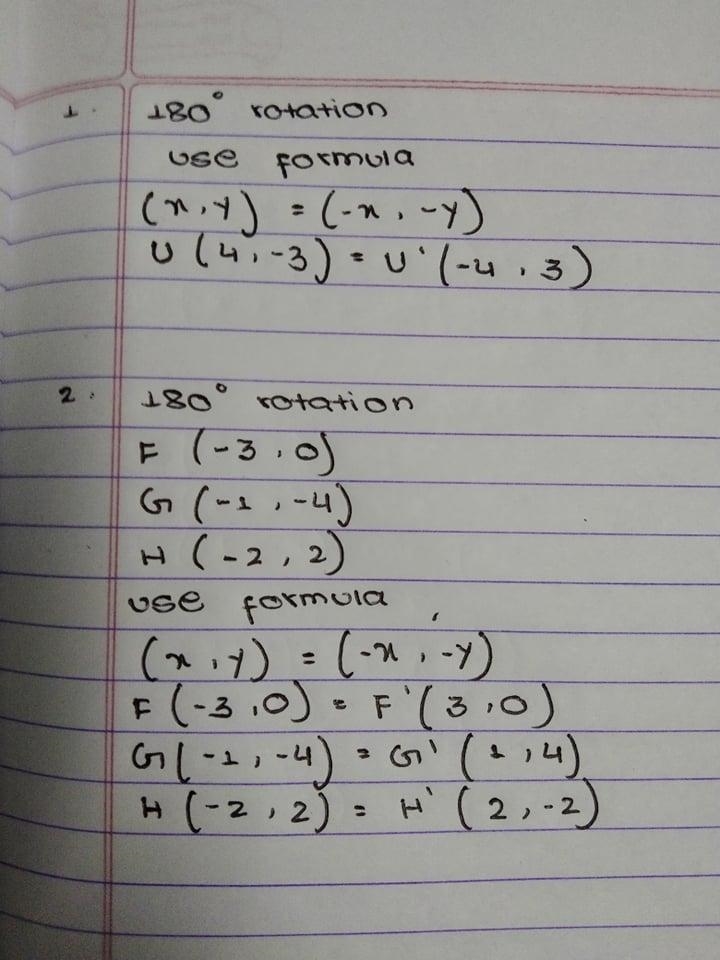 1. 180° rotation
use formula
(x,y) = (-x, -y)
U (4,-3) = U'(-4, 3)
2. 180° rotation
F (-3,0)
G (-1,-4)
H (-2,2)
use formula
(x,y) = (-x,-y)
F(-3,0) = F'(3,0)
G(-1,-4) = G'(1,4)
H(-2,2) = H'(2,-2)